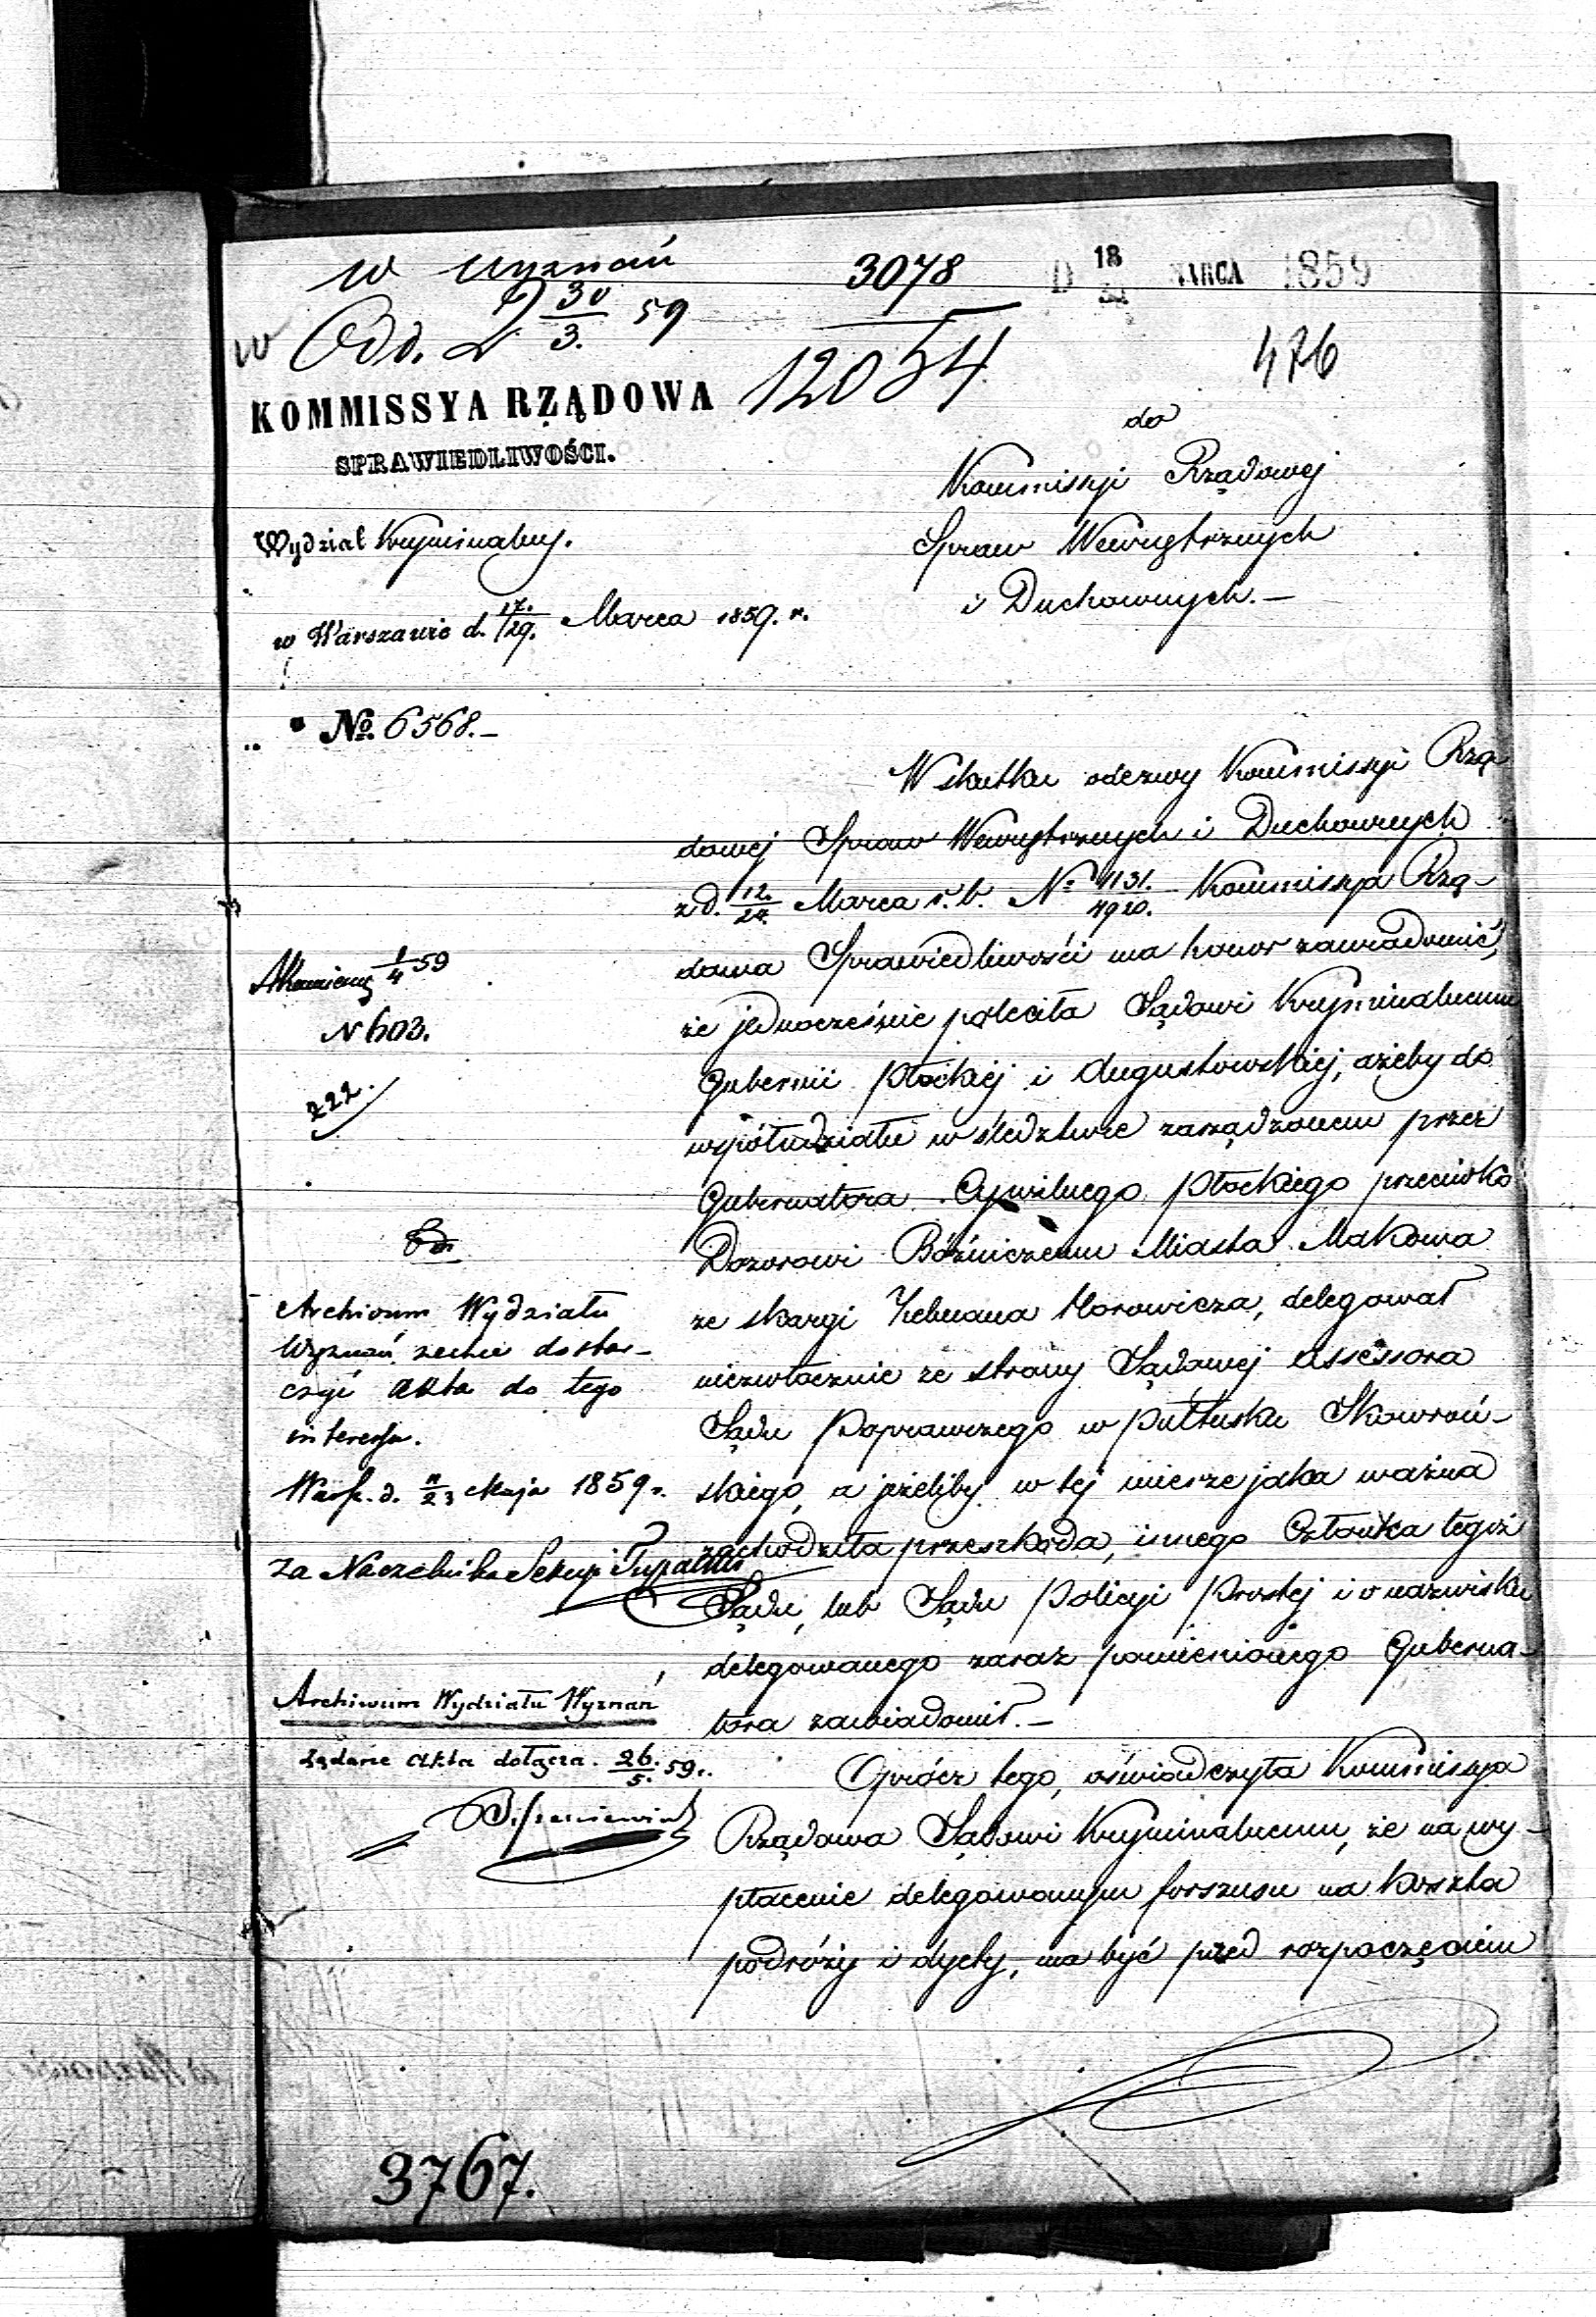 w Wyznań
3078
D 18 MARCA 1859
w Odd. 2 30/3. 59
12054.
476
KOMMISSYA RZĄDOWA
SPRAWIEDLIWOŚCI.
do
Kommissyi Rządowej
Spraw Wewnętrznych
i Duchownych.—
Wydział Kryminalny.
w Warszawie d. 17./29. Marca 1859. r.
No. 6568.—
W skutku odezwy Kommissyi Rzą-
dowej Spraw Wewnętrznych i Duchownych
z d. 12./24. Marca r. b. N: 1131./4920. Kommissya Rzą-
dowa Sprawiedliwości ma honor zawiadomić,
że jednocześnie poleciła Sądowi Kryminalnemu
Gubernii Płockiej i Augustowskiej, ażeby do
współudziału w śledztwie zarządzonem przez
Gubernatora Cywilnego Płockiego przeciwko
Dozorowi Bóżniczemu Miasta Makowa
ze skargi Zelmana Horowicza, delegował
niezwłocznie ze strony Sądowej Assessora
Sądu Poprawczego w Pułtusku Skowroń-
skiego, a jeżeliby w tej mierze jaka ważna
zachodziła przeszkoda, innego Członka tegoż
Sądu, lub Sądu Policyi Prostej i o nazwisku
delegowanego zaraz pomienionego Guberna-
tora zawiadomił.—
Oprócz tego, oświadczyła Kommissya
Rządowa Sądowi Kryminalnemu, że na wy-
płacenie delegowanym forszusu na koszta
podróży i dyety, ma być przed rozpoczęciem
1/4 59
N 603.
222.
Archivum Wydziału
Wyznań zechce dostar-
czyć akta do tego
interessu.
Warsz. d. 11/23 Maja 1859 r.
Za Naczelnika Sekcyi
Archiwum Wydziału Wyznań
żądane akta dołącza. 26/5. 59 r.
3767.